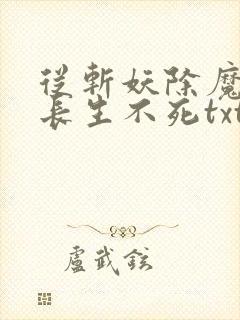 從斬妖除魔
長生不死txt
盧武鉉